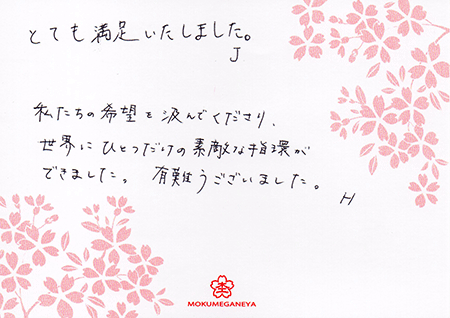 とても満足いたしました。
J
私たちの希望を汲んでくださり、
世界にひとつだけの素敵な指環が
できました。 有難うございました。
H
MOKUMEGANEYA